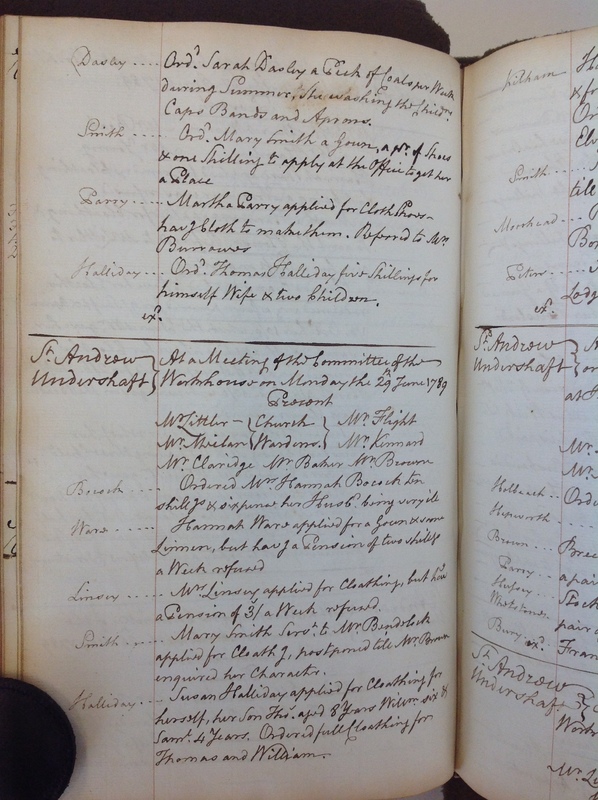 Dasley .... Ord.^d Sarah Dasley a Peck of Coals per Week
during Summer, she washing the Child.^ns
Caps Bands and Aprons.
Smith .... Ord.^d Mary Smith a Gown, a p.^r of Shoes
& one Shilling to apply at the Office to get her
a Place
Parry .... Martha Parry applied for Cloth
hav.^g Cloth to make them. Referred to M.^rs
Burrawer
Halliday .... Ord.^d Thomas Halliday five Shillings for
himself Wife & two Children.
ex.^d
S.^t Andrew Undershaft } At a Meeting of the Committee of the
Workhouse on Monday the 29.^th June 1789
Present
M.^r Zittler
M.^r { Church Wardens } M.^r Flight
M.^r Kinnard
M.^r Claridge M.^r Baker M.^r Brown
Bocock .... Ordered M.^rs Hannah Bocock ten
shill.^gs & sixpence her Husb.^d being very ill
Ware .... Hannah Ware applied for a Gown & some
Linnen, but hav.^g a Pension of two shill.^gs
a Week refused
Linsey .... M.^rs Linsey applied for Cloathing, but hav.^g
a Pension of 3/ a Week refused.
Smith .... Mary Smith Serv.^t to M.^r
applied for Cloath.^g, postponed till M.^r Brown
enquired her Character.
Halliday .... Susan Halliday applied for Cloathing for
herself, her Son Tho.^s aged 8 Years Will.^m six &
Sam.^l 4 Years. Ordered full Cloathing for
Thomas and William.
Smith ....
till
Morehead ..
Peter ...
Lodg
ex.^d
S.^t Andrew
Undershaft }
at
M.^r
M.^r
Holbeach ..
Hepworth ..
Brown ...
Parry ...
a pair
Hussey
Whetstone
pair
Bury .. ex.^d
Fran
S.^t Andrew
Undershaft }